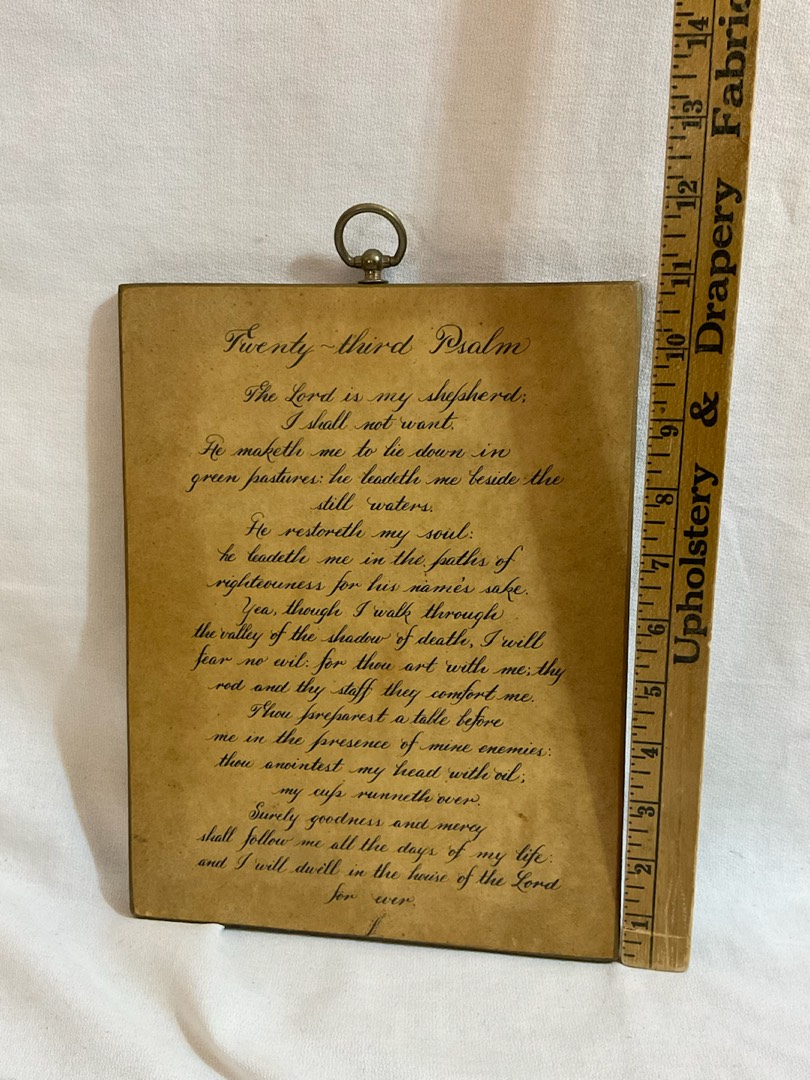 Twenty~third Psalm
The Lord is my shepherd;
I shall not want.
He maketh me to lie down in
green pastures: he leadeth me beside the
still waters.
He restoreth my soul:
he leadeth me in the paths of
righteouness for his name's sake.
Yea, though I walk through
the valley of the shadow of death, I will
fear no evil: for thou art with me; thy
rod and thy staff they comfort me.
Thou preparest a table before
me in the presence of mine enemies:
thou anointest my head with oil;
my cup runneth over.
Surely goodness and mercy
shall follow me all the days of my life:
and I will dwell in the house of the Lord
for ever.
Upholstery & Drapery Fabric
1 2 3 4 5 6 7 8 9 10 11 12 13 14